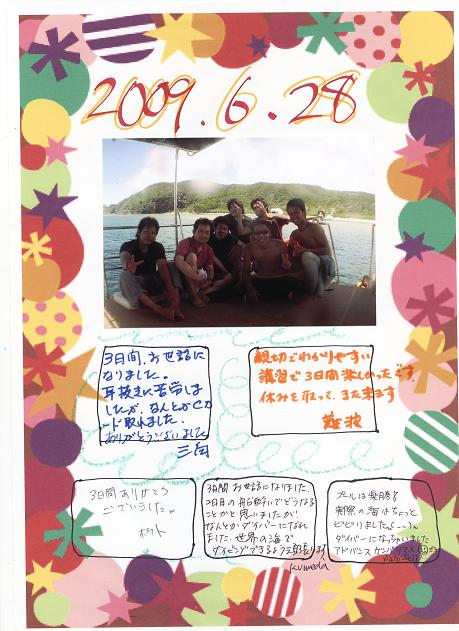 2009.6.28
3日間、お世話に
なりました。
耳抜きに苦労しま
したが、なんとかCカ
ード取れました。
ありがとうございました
親切でわかりやすい
講習で3日間楽しかったです。
休みを取って、また来ます
難波
3日間ありがとう
ございました。
3日間お世話になりました。
2日目の船酔いでどうなる
ことかと思いましたが
なんとかダイバーになれ
ました。世界の海で
ダイビングできるよう頑張ります
Kumeda
プールは楽勝♪
実際の海はちょっと
ビビりました
ダイバーになっちゃいました
アドバンス ガンバリマス